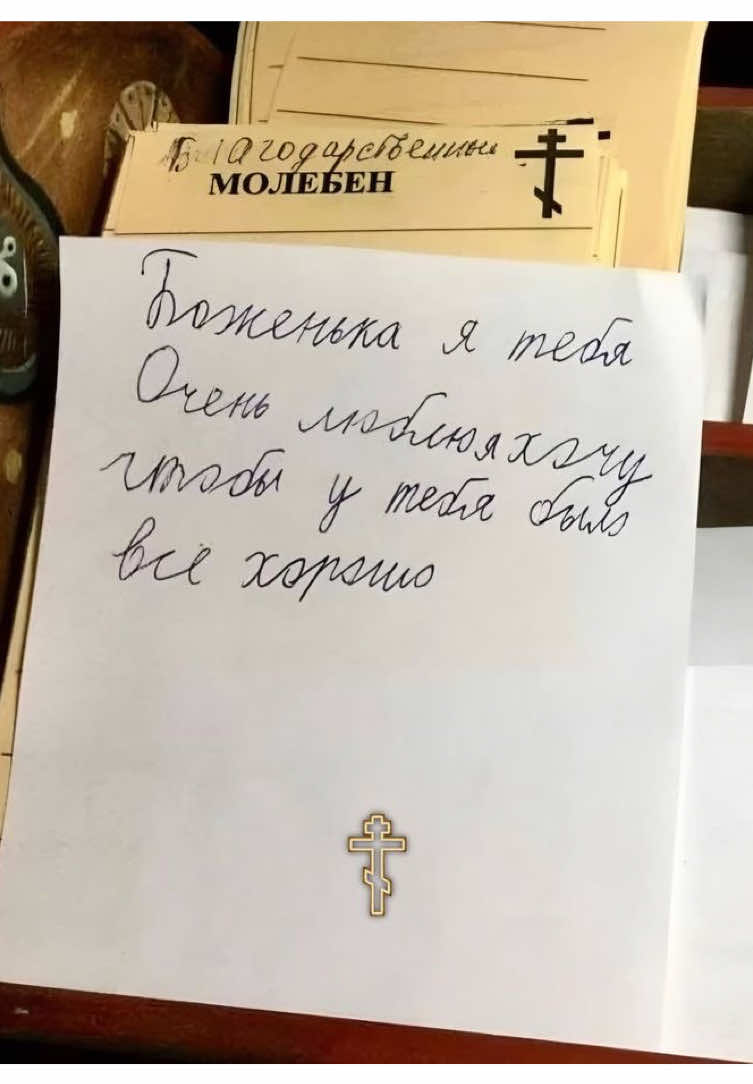 Благодарственный
МОЛЕБЕН
Боженька я тебя
Очень люблюя хочу
чтобы у тебя было
все хорошо